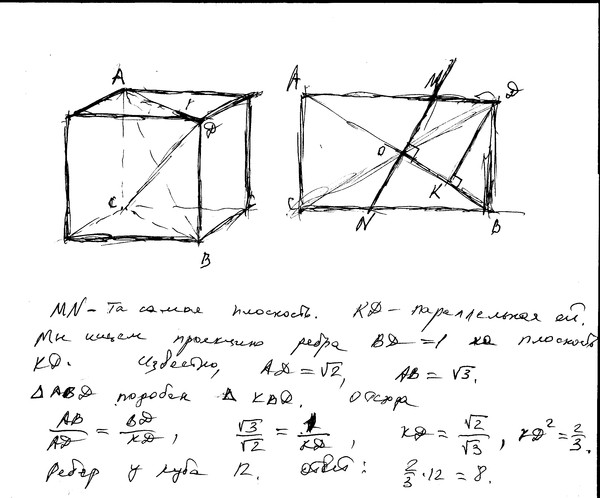 A
D
C
B
A
M
D
O
K
C
N
B
MN – та самая плоскость. KD – параллельная ей.
Мы ищем проекцию ребра BD = 1 на плоскость
KD. Известно, AD = √2, AB = √3.
△ABD подобен △KBD. Отсюда
AB/AD = BD/KD, √3/√2 = 1/KD, KD = √2/√3, KD² = 2/3.
Рёбер у куба 12. Ответ: 2/3 · 12 = 8.